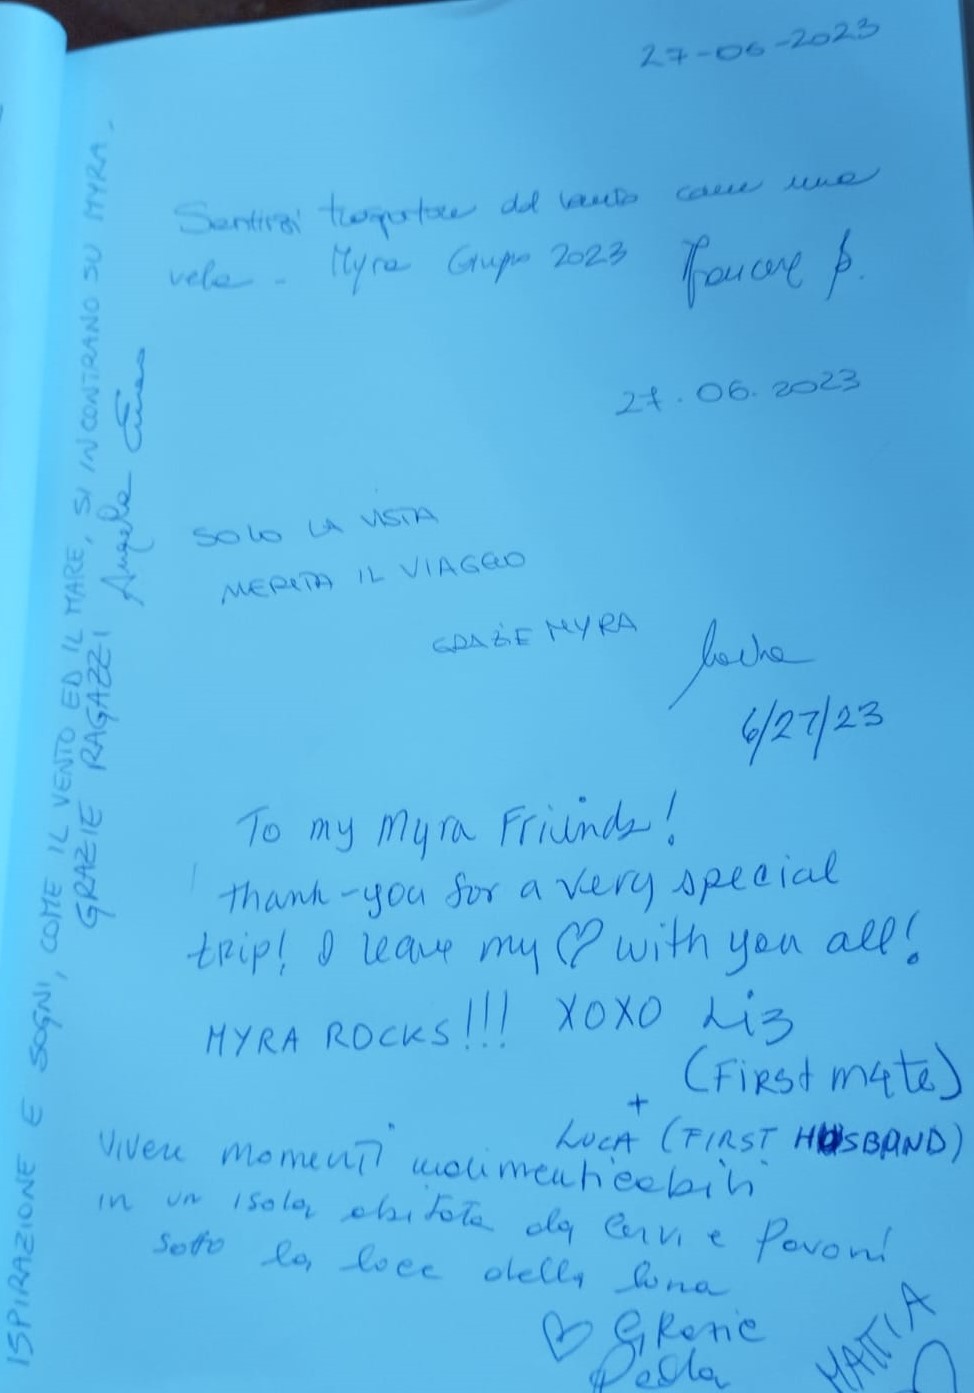 27-06-2023
Sentirsi trasportare dal vento come una
vela - Myra Group 2023
27.06.2023
SOLO LA VISTA
MERITA IL VIAGGIO
GRAZIE MYRA
6/27/23
To my Myra Friends!
thank-you for a very special
trip! I leave my ♡ with you all!
MYRA ROCKS!!! XOXO Liz
(First mate)
+
LUCA (FIRST HUSBAND)
Vivere momenti indimenticabili
in un isola abitata da cervi e Pavoni
sotto la luce della luna
♡ Grazie
Paola
MATTIA
ISPIRAZIONE E SOGNI, COME IL VENTO ED IL MARE, SI INCONTRANO SU MYRA.
GRAZIE RAGAZZI Angela